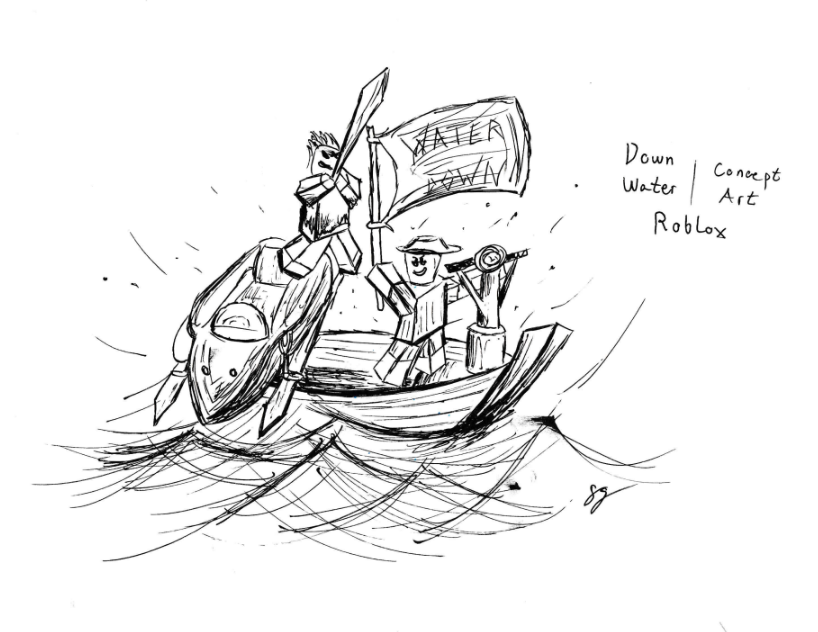 WATER
DOWN
Down
Water
Concept
Art
Roblox
Sg